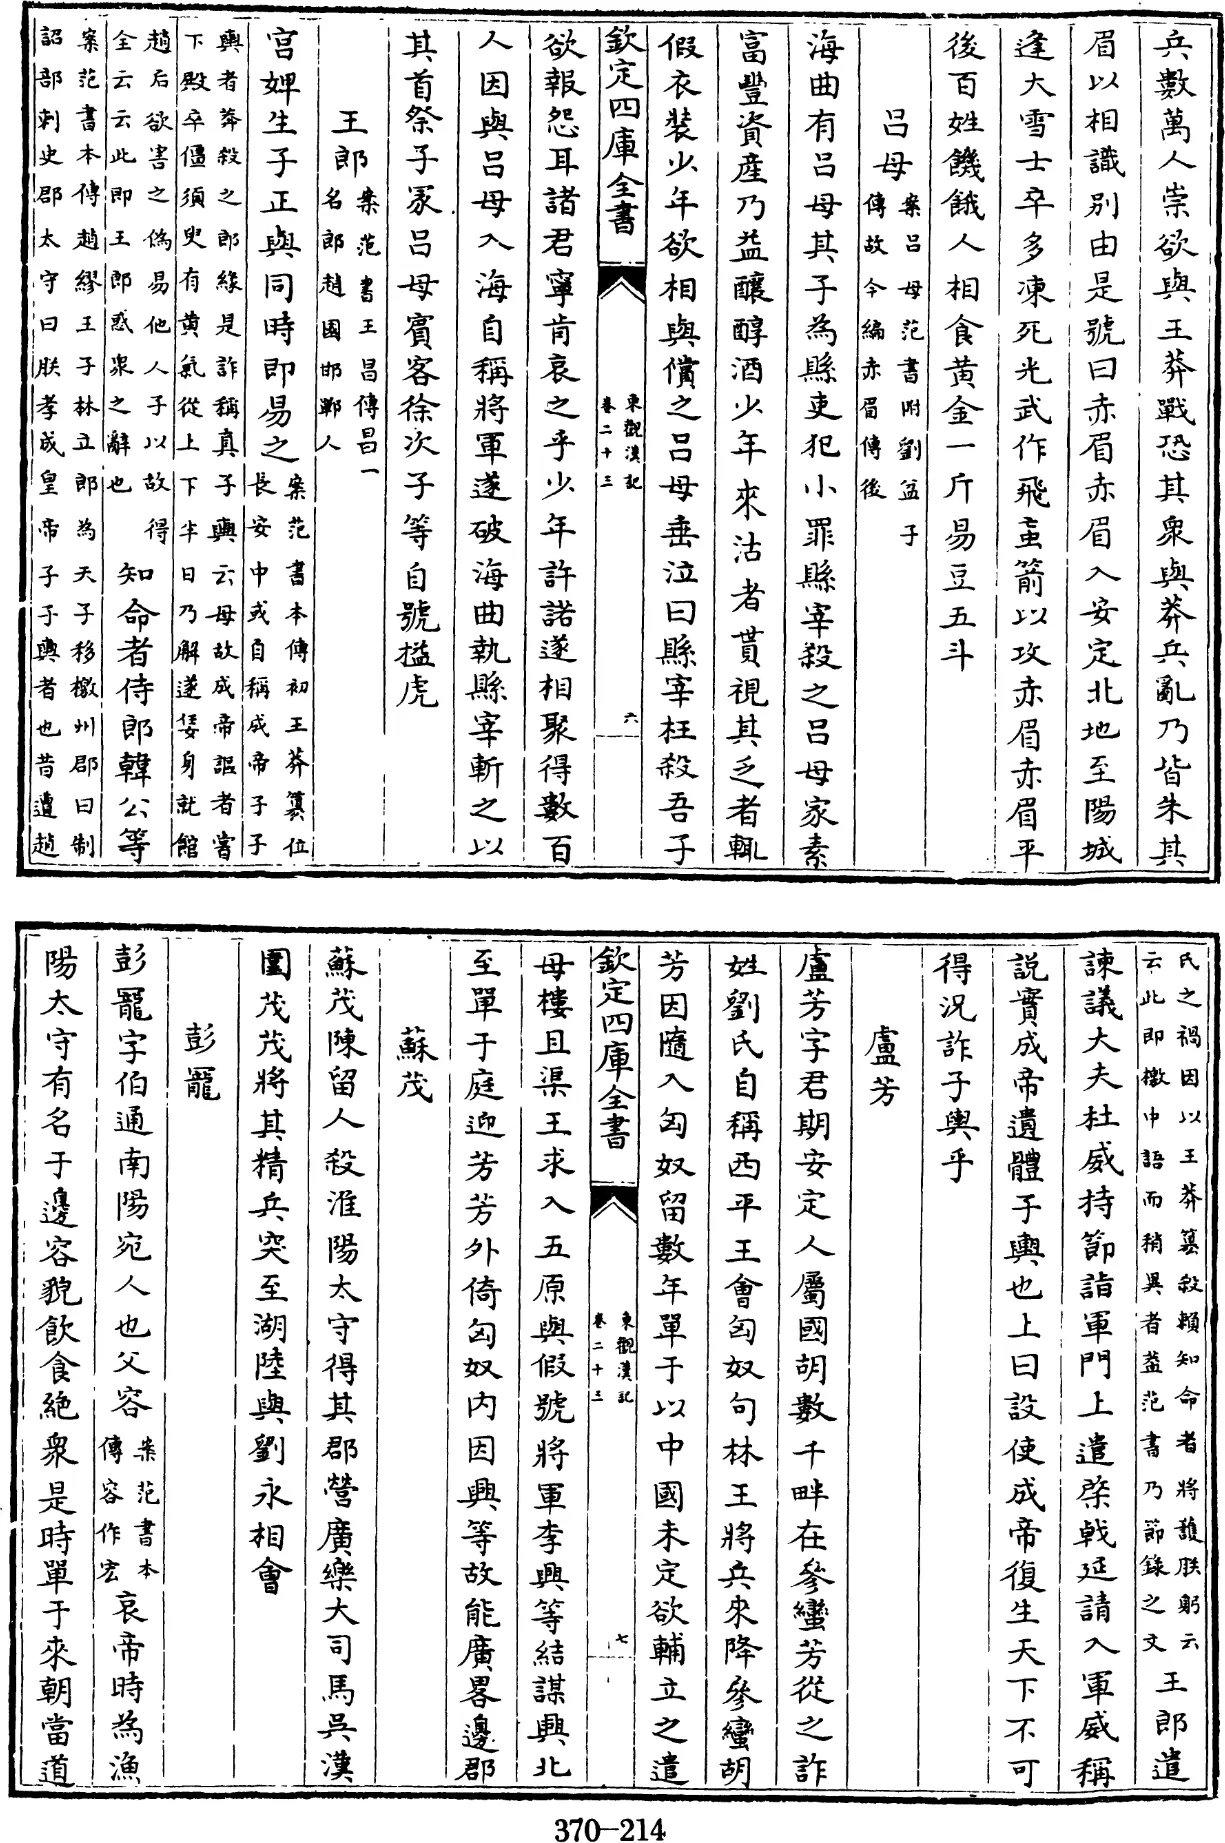 兵數萬人崇欲與王莽戰恐其衆與莽兵亂乃皆朱其
眉以相識别由是號曰赤眉赤眉入安定北地至陽城
逢大雪士卒多凍死光武作飛䖟箭以攻赤眉赤眉平
後百姓饑餓人相食黄金一斤易豆五斗
吕母
案吕母范書附劉盆子
傳故今編赤眉傳後
海曲有吕母其子為縣吏犯小罪縣宰殺之吕母家素
富豐資産乃益釀醇酒少年來沽者貰視其乏者輒
假衣裝少年欲相與償之吕母垂泣曰縣宰枉殺吾子
欽定四庫全書
東觀漢記
卷二十三
六
欲報怨耳諸君寧肯哀之乎少年許諾遂相聚得數百
人因與吕母入海自稱將軍遂破海曲執縣宰斬之以
其首祭子冢吕母賓客徐次子等自號搤虎
王郎
案范書王昌傳昌一
名郎趙國邯鄲人
宫婢生子正與同時即易之
案范書本傳初王莽簒位
長安中或自稱成帝子子
輿者莽殺之郎緣是詐稱真子輿云母故成帝謳者嘗
下殿卒僵須臾有黄氣從上下半日乃解遂姙身就館
趙后欲害之偽易他人子以故得
全云云此即王郎惑衆之辭也
知命者侍郎韓公等
案范書本傳趙繆王子林立郎為天子移檄州郡曰制
詔部刺史郡太守曰朕孝成皇帝子子輿者也昔遭趙
氏之禍因以王莽簒殺賴知命者將護朕躬云
云此即檄中語而稍異者葢范書乃節錄之文
王郎遣
諫議大夫杜威持節詣軍門上遣棨戟延請入軍威稱
説實成帝遺體子輿也上曰設使成帝復生天下不可
得况詐子輿乎
盧芳
盧芳字君期安定人屬國胡數千畔在參蠻芳從之詐
姓劉氏自稱西平王會匈奴句林王將兵來降參蠻胡
芳因隨入匈奴留數年單于以中國未定欲輔立之遣
欽定四庫全書
東觀漢記
卷二十三
七
母樓且渠王求入五原與假號將軍李興等結謀興北
至單于庭迎芳芳外倚匈奴内因興等故能廣畧邊郡
蘇茂
蘇茂陳留人殺淮陽太守得其郡營廣樂大司馬吳漢
圍茂茂將其精兵突至湖陸與劉永相會
彭寵
彭寵字伯通南陽宛人也父容
案范書本
傳容作宏
哀帝時為漁
陽太守有名于邊容貌飲食絶衆是時單于來朝當道
370-214